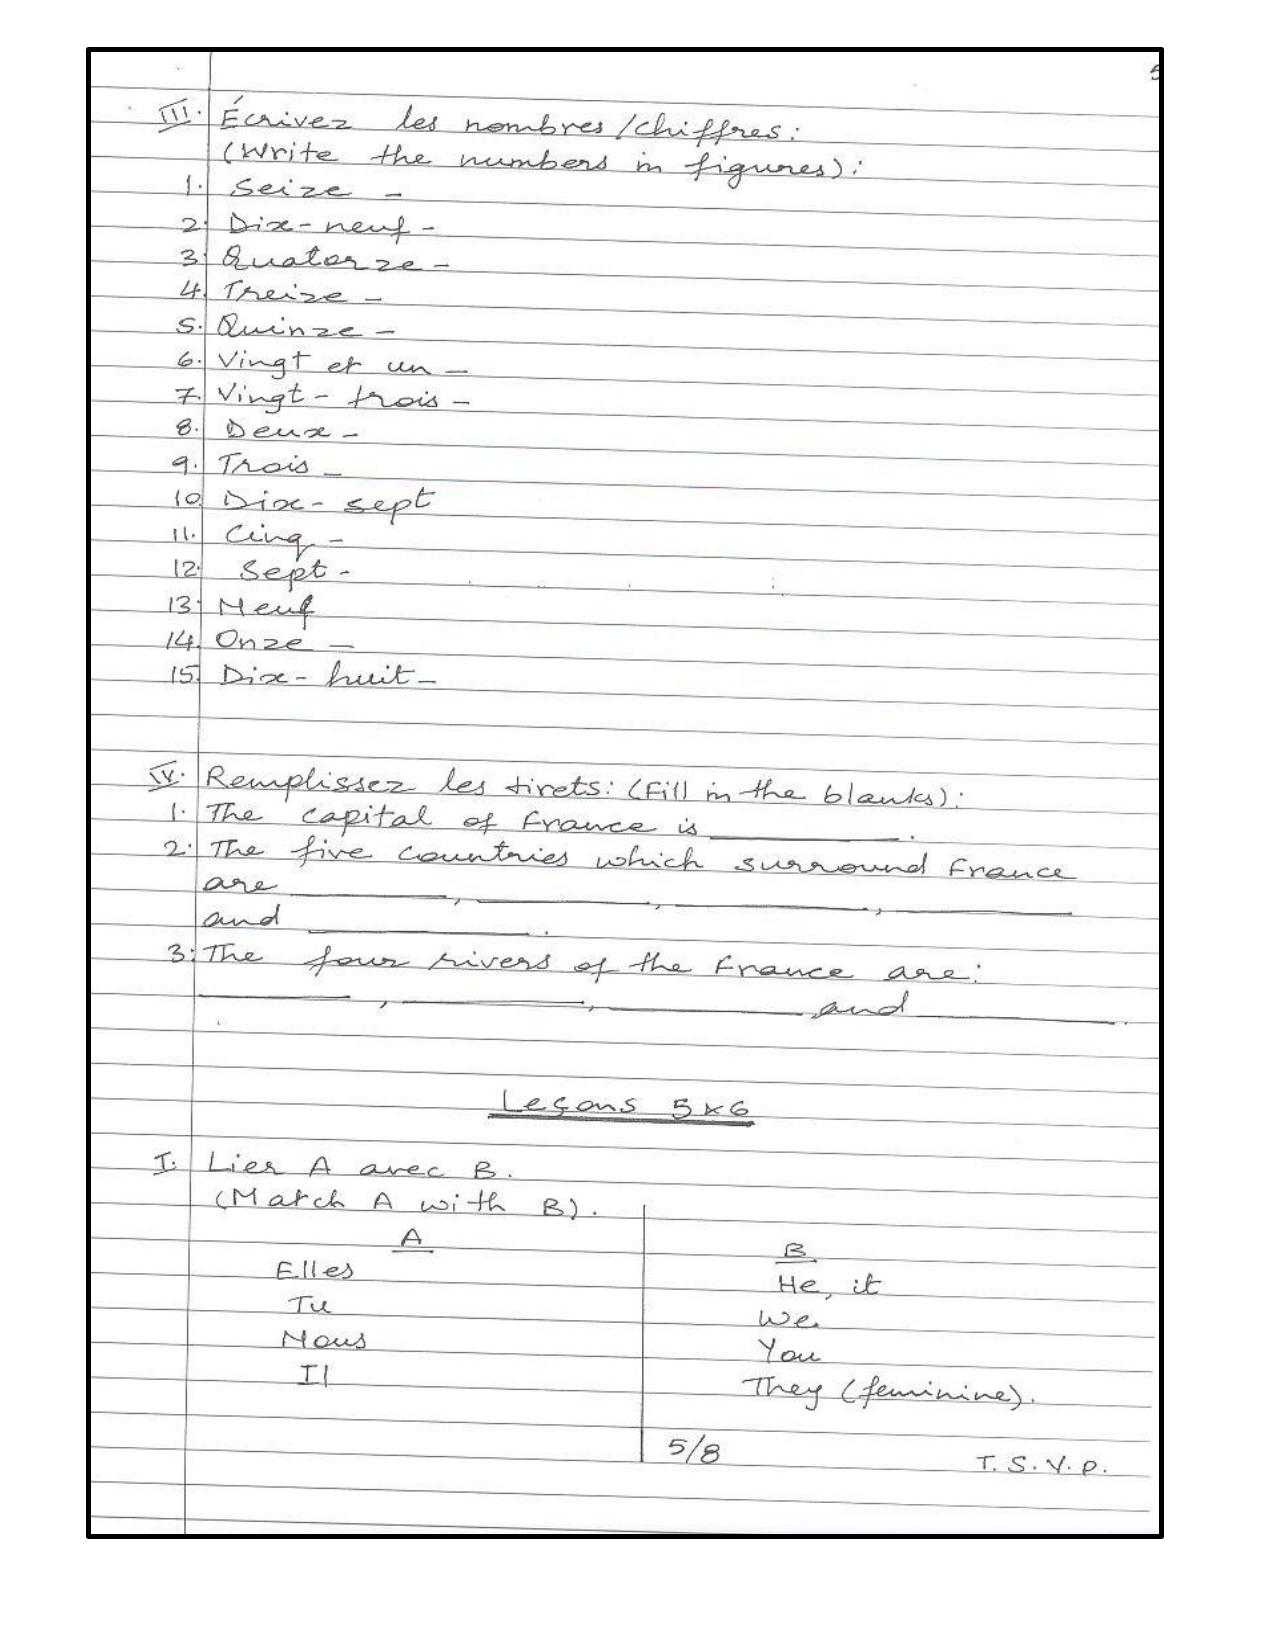 5
III. Écrivez les nombres/chiffres:
(Write the numbers in figures):
1. Seize -
2. Dix-neuf -
3. Quatorze -
4. Treize -
5. Quinze -
6. Vingt et un -
7. Vingt-trois -
8. Deux -
9. Trois -
10. Dix-sept
11. Cinq -
12. Sept -
13. Neuf
14. Onze -
15. Dix-huit -
IV. Remplissez les tirets: (Fill in the blanks):
1. The capital of France is __________.
2. The five countries which surround France
are __________, __________, __________, __________
and __________.
3. The four rivers of the France are:
__________, __________, __________ and __________.
Leçons 5 x 6
I. Lier A avec B.
(Match A with B).
A B
Elles He, it
Tu We
Nous You
Il They (feminine).
5/8 T.S.V.P.